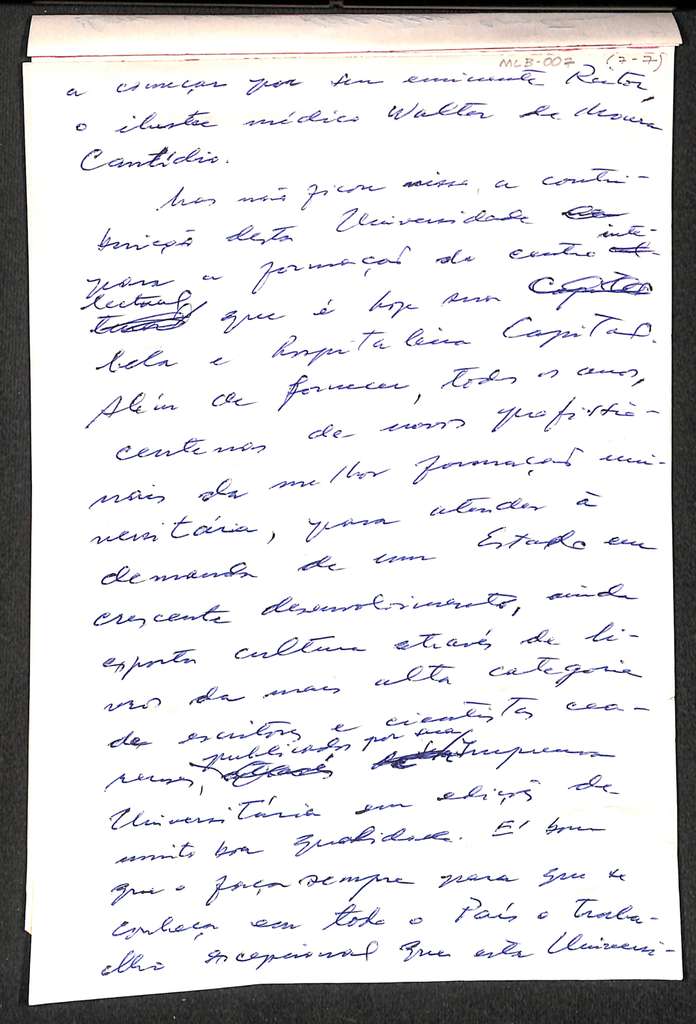 MLB-007 (7-7)
a começar por seu eminente Reitor,
o ilustre médico Walter de Moura
Cantídio.
Mas não ficou nisso, a contri-
buição desta Universidade
para a formação do centro inte-
lectual que é hoje sua
bela e hospitaleira Capital.
Além de fornecer, todos os anos,
centenas de novos profissio-
nais da melhor formação uni-
versitária, para atender à
demanda de um Estado em
crescente desenvolvimento, ainda
exporta cultura através de li-
vros da mais alta categoria
de escritores e cientistas cea-
renses, publicados por sua Imprensa
Universitária em edição de
muito boa qualidade. É bom
que o faça sempre para que se
conheça em todo o País o traba-
lho excepcional que esta Universi-